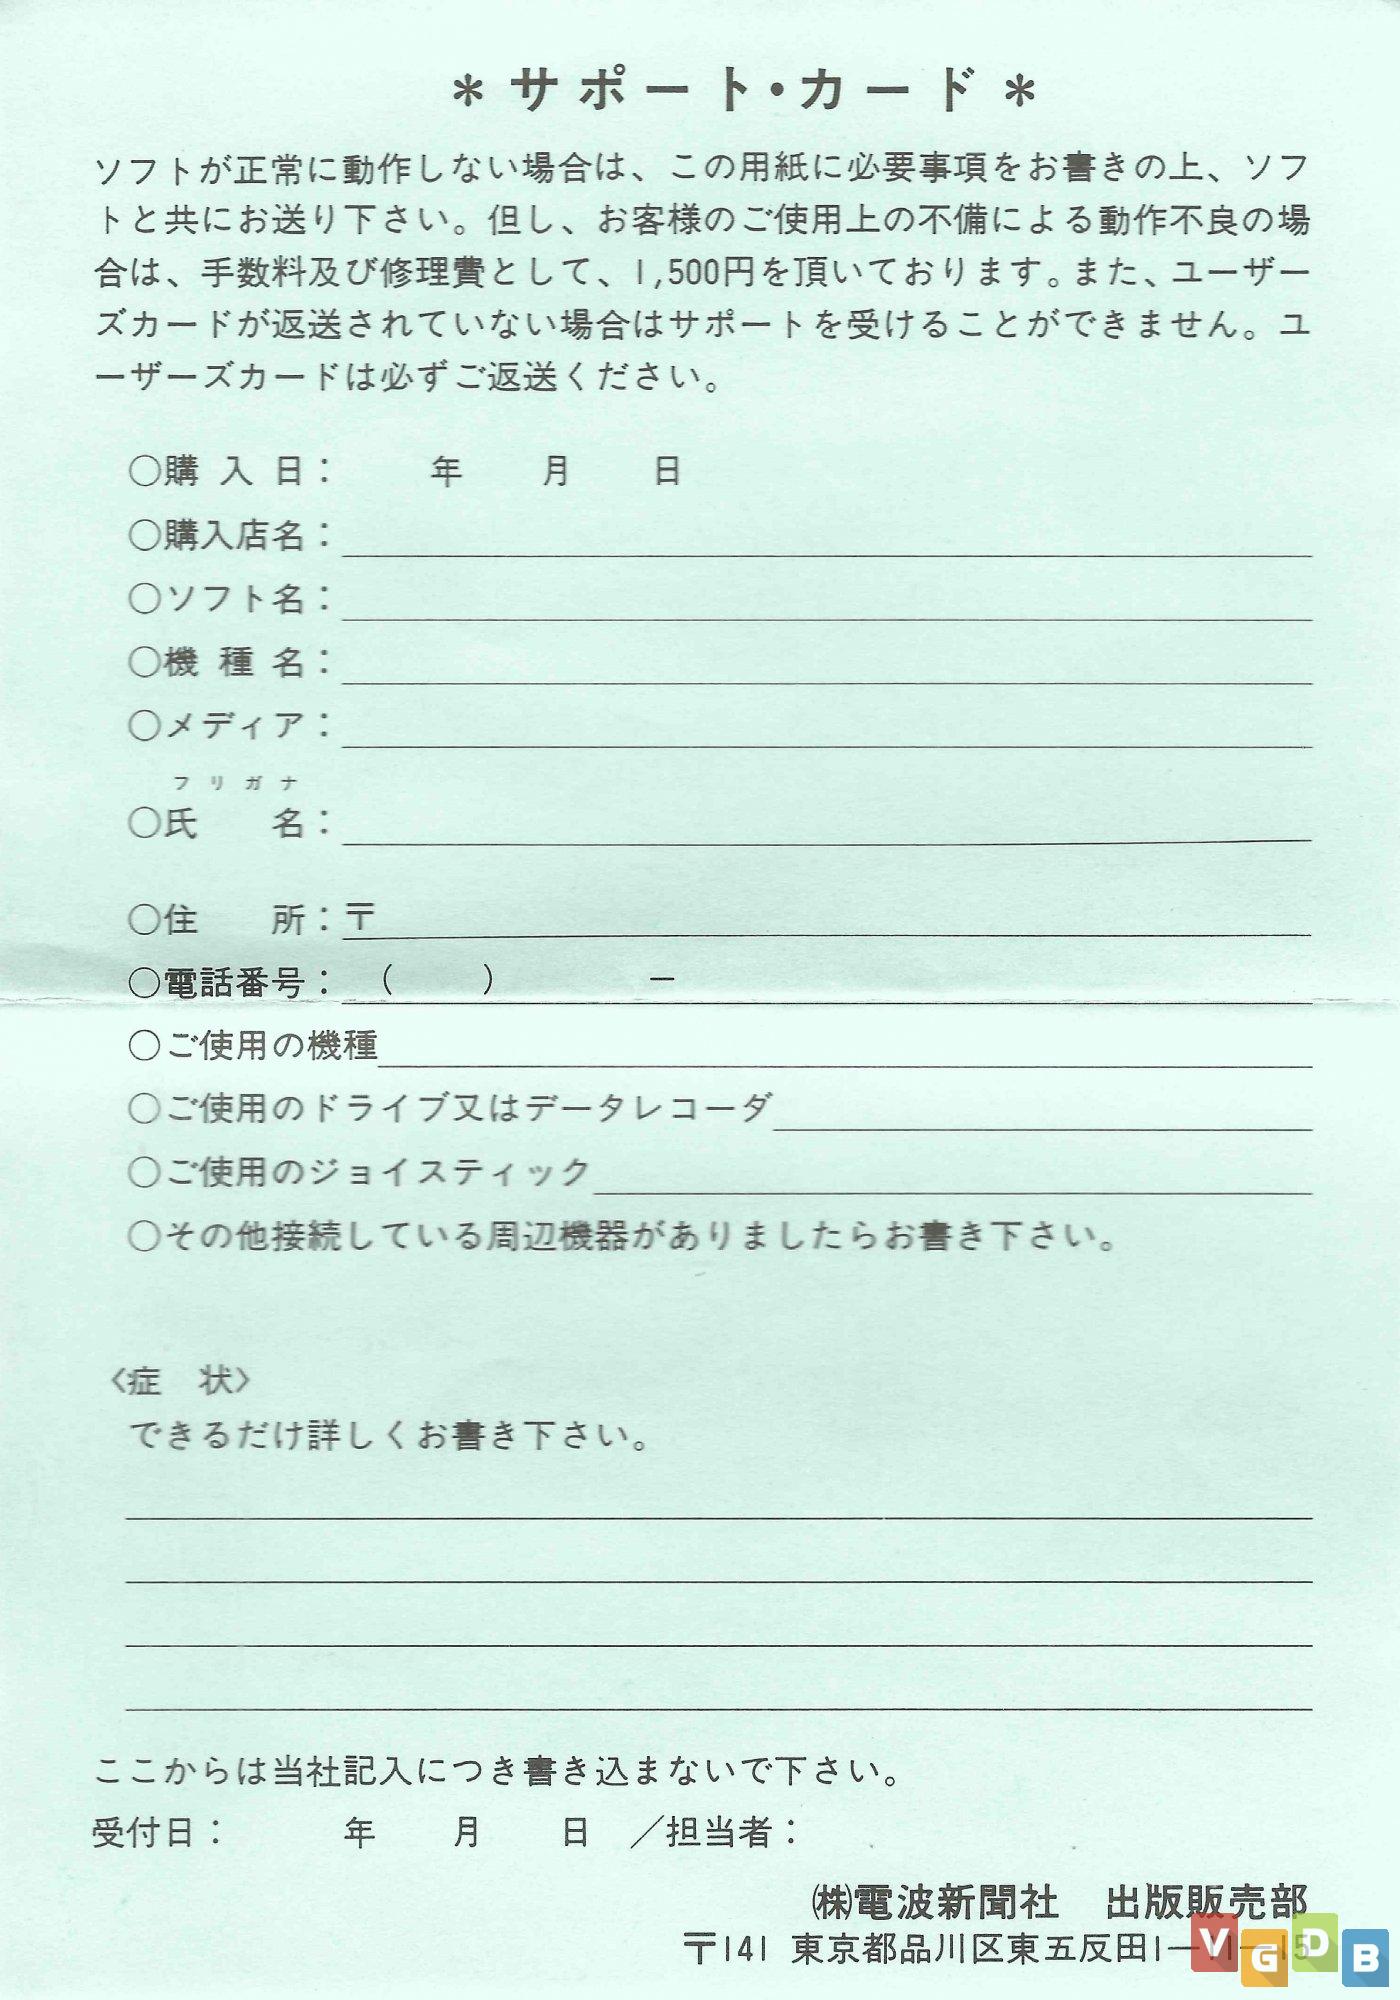 ＊サポート・カード＊
ソフトが正常に動作しない場合は、この用紙に必要事項をお書きの上、ソフ
トと共にお送り下さい。但し、お客様のご使用上の不備による動作不良の場
合は、手数料及び修理費として、1,500円を頂いております。また、ユーザー
ズカードが返送されていない場合はサポートを受けることができません。ユ
ーザーズカードは必ずご返送ください。
○購 入 日： 年 月 日
○購入店名：
○ソフト名：
○機 種 名：
○メディア：
フ リ ガ ナ
○氏 名：
○住 所：〒
○電話番号： ( ) －
○ご使用の機種
○ご使用のドライブ又はデータレコーダ
○ご使用のジョイスティック
○その他接続している周辺機器がありましたらお書き下さい。
〈症 状〉
できるだけ詳しくお書き下さい。
ここからは当社記入につき書き込まないで下さい。
受付日： 年 月 日 ／担当者：
㈱電波新聞社 出版販売部
〒141 東京都品川区東五反田1－11－15
VGDB